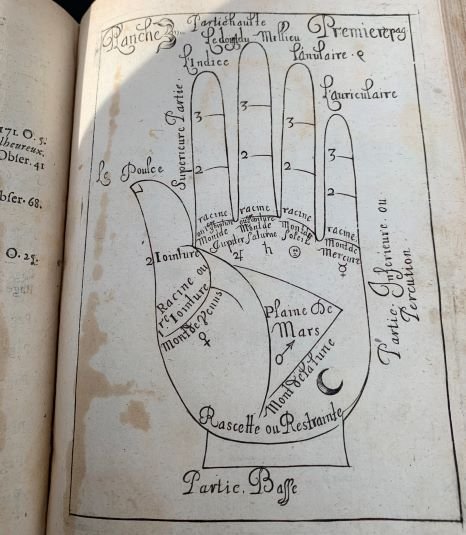 Planche
Premiere pag
Partie haulte
Le doigt du Millieu
L'Indice
l'anulaire.
L'auriculaire
Superieure Partie.
171. O. 5.
lheureux.
Obser. 41
bser. 68.
O. 25.
Le Poulce
3
3
3
3
2
2
2
2
racine
racine
racine
racine
Mont de
Jupiter
♃
Mont de
Saturne
♄
Mont du
Soleil
☉
Mont de
Mercure
☿
2 Iointure
Racine ou
1re Iointure
Mont de Venus
♀
Plaine De
Mars
♂
Mont de la Lune
☾
Partie. Inferieure. ou
Percution
Rascette ou Restrainte
Partie. Basse